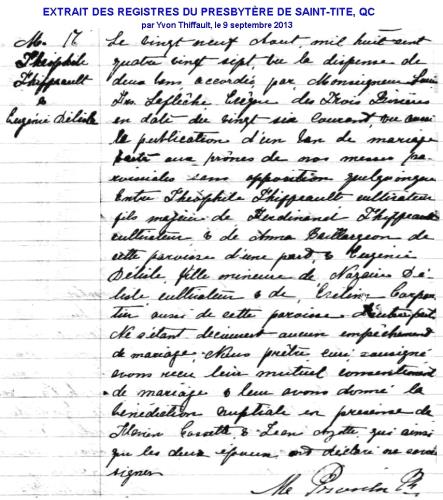 EXTRAIT DES REGISTRES DU PRESBYTÈRE DE SAINT-TITE, QC
par Yvon Thiffault, le 9 septembre 2013
M. 17
Théophile
Thiffeault
&
Eugénie Délisle
Le vingt neuf Aout mil huit cent
quatre vingt sept vu la dispense de
deux bans accordée par Monseigneur Louis
Frs. Laflèche Evêque des Trois Rivières
en date du vingt six courant, vu aussi
la publication d'un ban de mariage
faite aux prônes de nos messes pa-
roissiales sans opposition quelquonque
Entre Théophile Thiffeault cultivateur
fils majeur de Ferdinand Thiffeault
cultivateur & de Anna Baillargeon de
cette paroisse d'une part, & Eugénie
Délisle, fille mineure de Nazaire Dé-
lisle cultivateur & de Exeline Carpen-
tier aussi de cette paroisse d'autre part
Ne s'étant decouvert aucun empêchement
de mariage, Nous prêtre curé, soussigné
avons reçu leur mutuel consentement
de mariage & leur avons donné la
bénédiction nuptiale en présence de
Cossette & Jean qui ainsi
que les deux époux ont déclaré ne savoir
signer